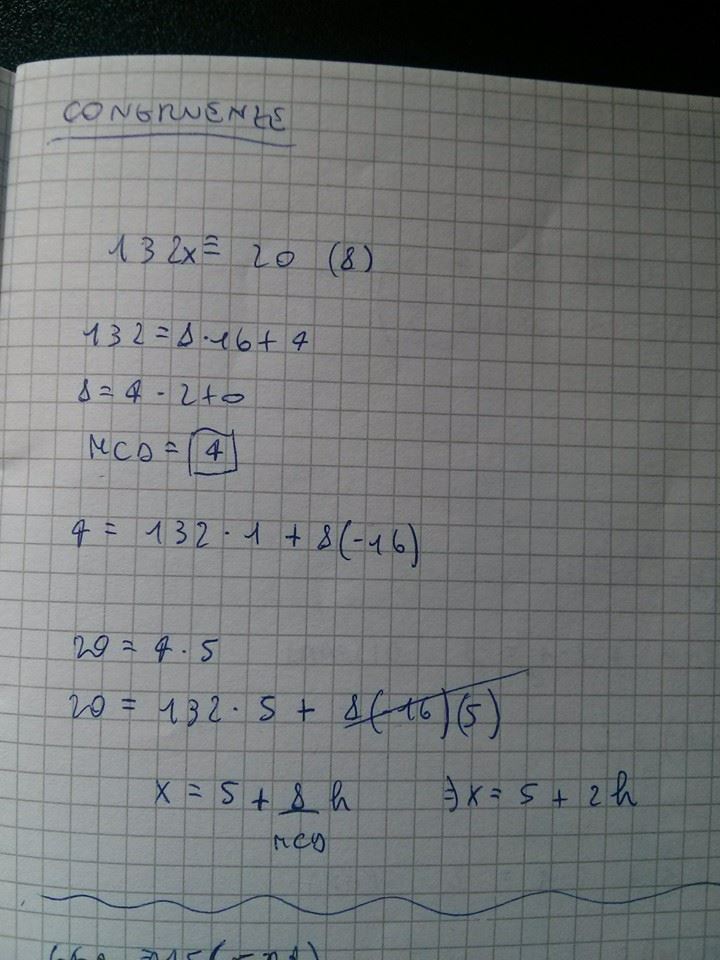 CONGRUENZE
132x ≡ 20 (8)
132 = 8·16 + 4
8 = 4·2+0
MCD = 4
4 = 132·1 + 8(-16)
20 = 4·5
20 = 132·5 + 8(-16)(5)
x = 5 + 8/MCD h ⇒ x = 5 + 2h